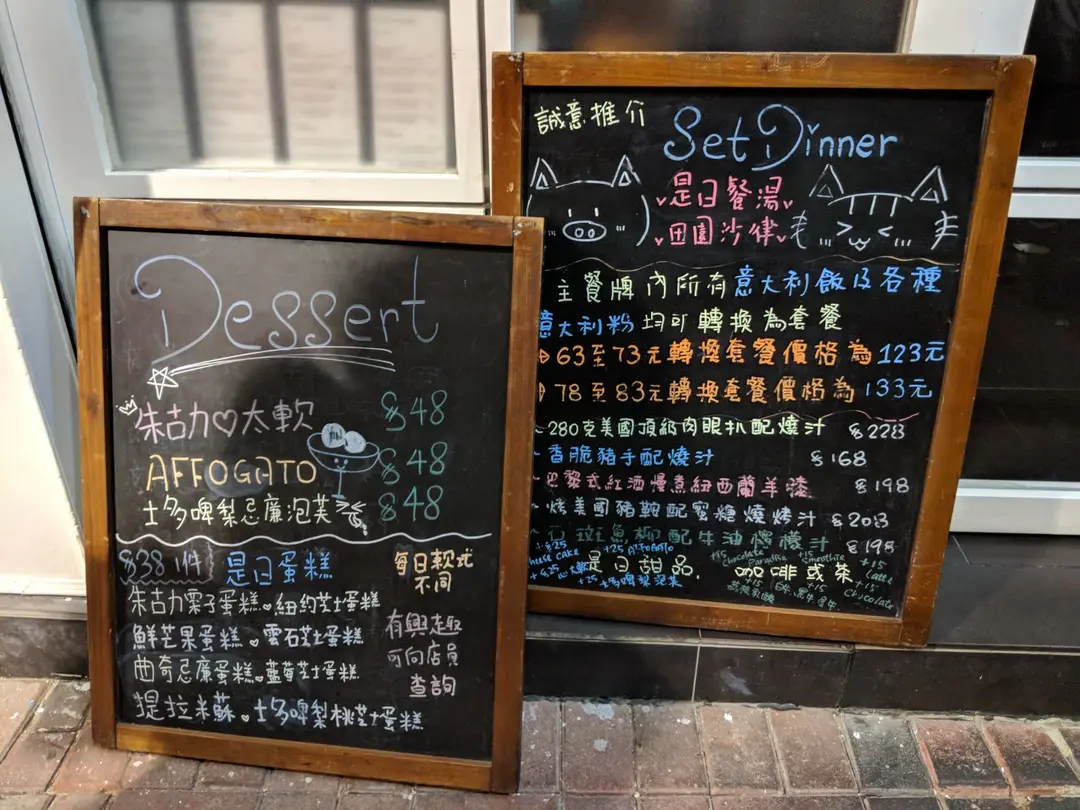 Dessert
朱古力♡太軟 $48
AFFOGATO $48
士多啤梨忌廉泡芙 $48
$38 1件 是日蛋糕
每日款式
不同
朱古力栗子蛋糕 紐約芝士蛋糕
鮮芒果蛋糕 雲石芝士蛋糕
曲奇忌廉蛋糕 藍莓芝士蛋糕
提拉米蘇 士多啤梨桃芝士蛋糕
有興趣
可向店員
查詢
誠意推介
Set Dinner
是日餐湯
田園沙律
主餐牌內所有意大利飯及各種
意大利粉均可轉換為套餐
63至73元轉換套餐價格為123元
78至83元轉換套餐價格為133元
280克美國頂級肉眼扒配燒汁 $228
香脆豬手配燒汁 $168
巴黎式紅酒慢煮紐西蘭羊膝 $198
烤美國豬鞍配蜜糖燒烤汁 $208
石斑魚柳配牛油檸檬汁 $198
是日甜品 咖啡或茶
+$25
cheese cake
+25 Affogato
+15
chocolate
Paradise
+15
smoothie
+15
Cake
+15
Chocolate